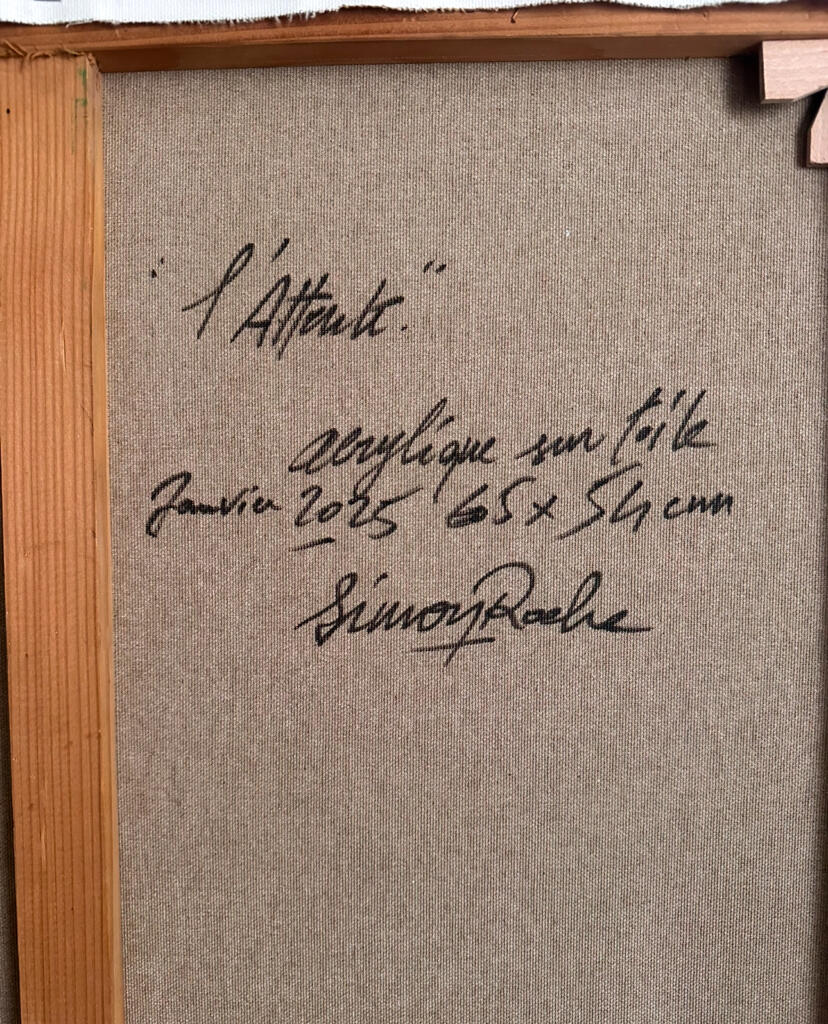 "l'Attente."
acrylique sur toile
Janvier 2025 65 x 54 cm
Simon Roche